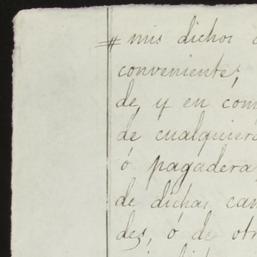 # mis dichos
conveniente;
de, y en com
de cualquiera
ó pagadera
de dichas can
des, ó de otr